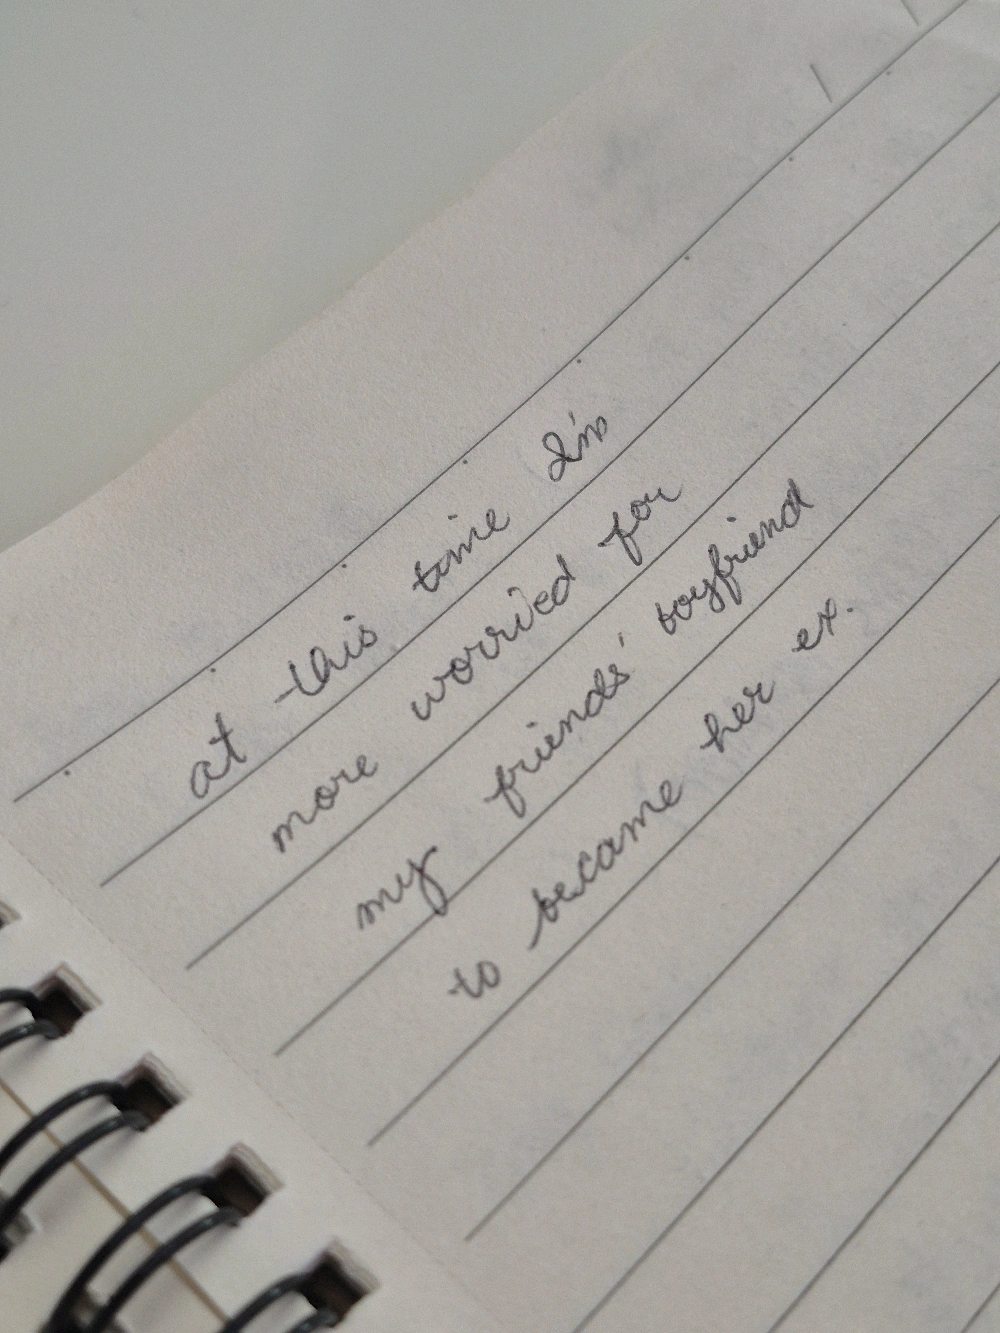 at this time I'm
more worried for
my friends' boyfriend
to became her ex.